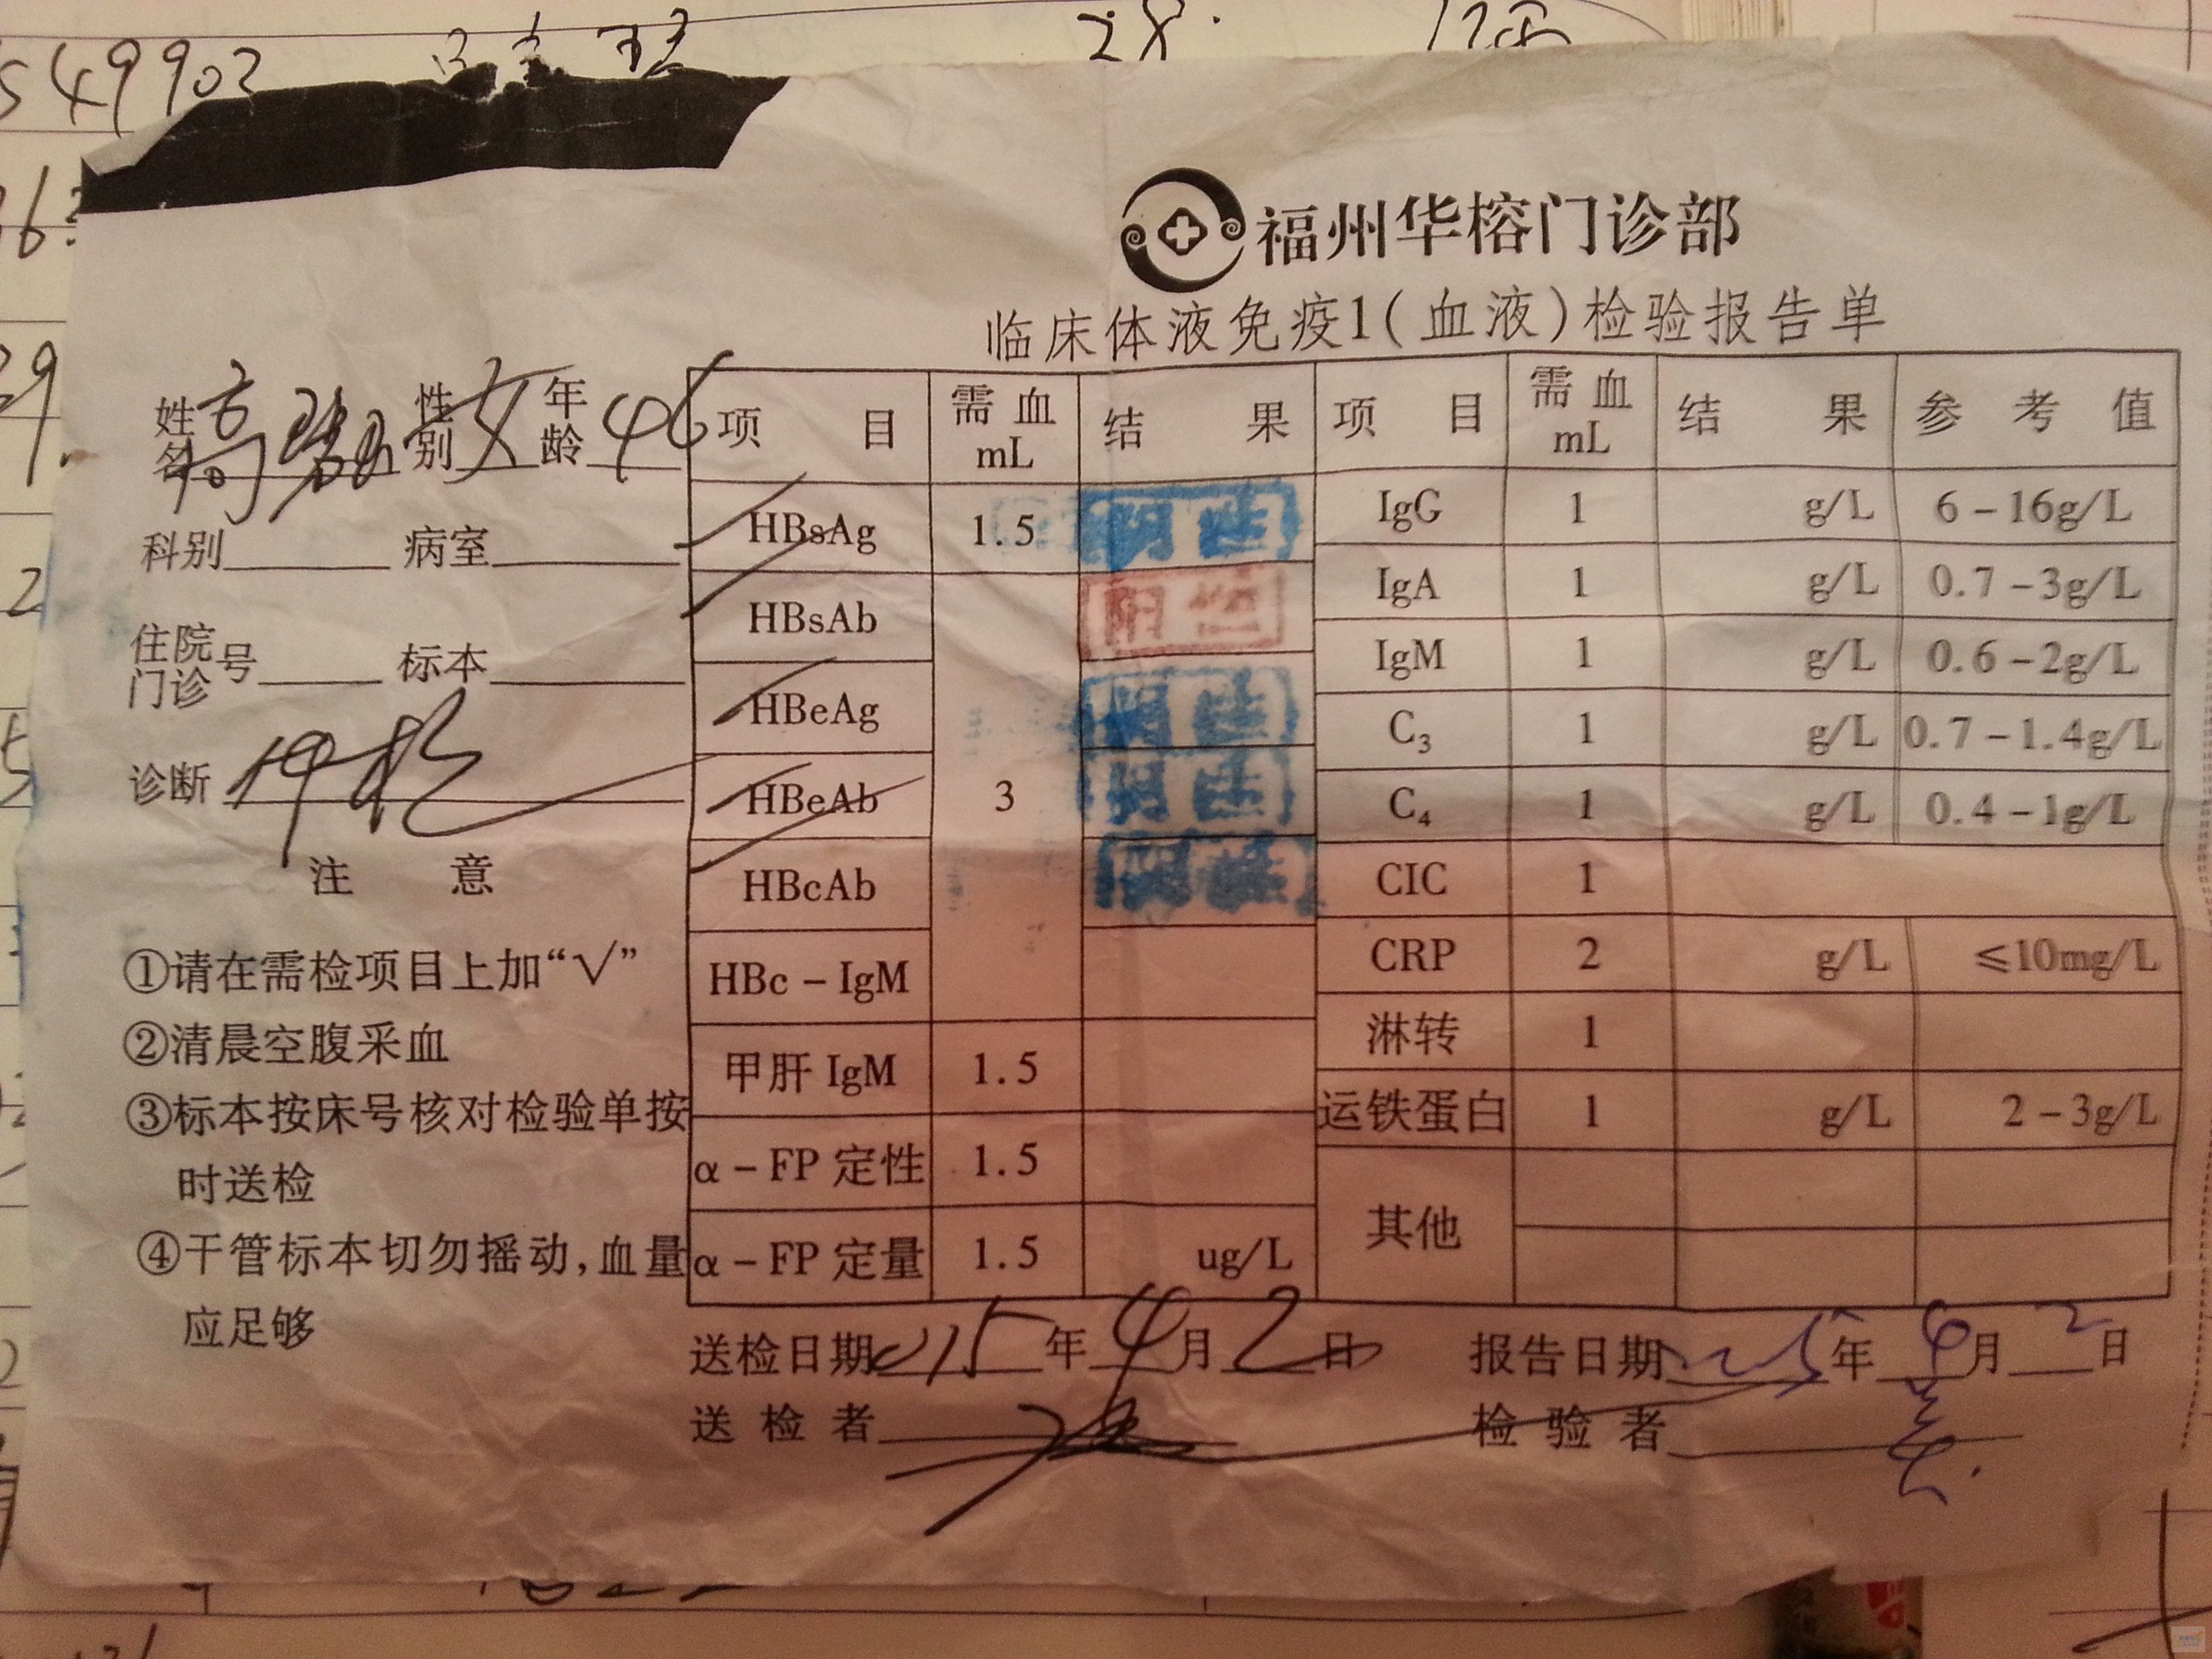 549902
28.
福州华榕门诊部
临床体液免疫1(血液)检验报告单
姓名 高 性别 女 年龄 46
科别 病室
住院门诊号 标本
诊断
注 意
①请在需检项目上加“√”
②清晨空腹采血
③标本按床号核对检验单按
时送检
④干管标本切勿摇动,血量
应足够
项 目 需血mL 结 果 项 目 需血mL 结 果 参 考 值
HBsAg 1.5 阴性 IgG 1 g/L 6-16g/L
HBsAb 阳性 IgA 1 g/L 0.7-3g/L
HBeAg 阴性 IgM 1 g/L 0.6-2g/L
C₃ 1 g/L 0.7-1.4g/L
HBeAb 3 阴性 C₄ 1 g/L 0.4-1g/L
HBcAb 阴性 CIC 1
HBc-IgM CRP 2 g/L ≤10mg/L
淋转 1
甲肝IgM 1.5
运铁蛋白 1 g/L 2-3g/L
α-FP定性 1.5
其他
α-FP定量 1.5 ug/L
送检日期 015年4月2日 报告日期 年4月2日
送检者 检验者